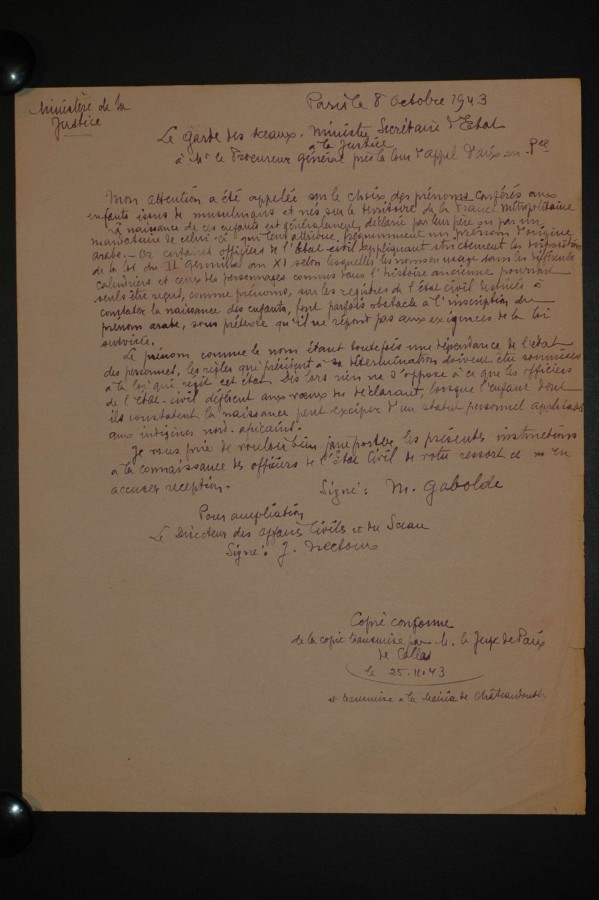 Ministère de la
Justice
Paris le 8 octobre 1943
Le Garde des Sceaux. Ministre Secrétaire d'Etat
à la Justice
à Mr le Procureur Général près la Cour d'appel d'Aix en Pce
Mon attention a été appelée sur le choix des prénoms conférés aux
enfants issus de musulmans et nés sur le territoire de la France métropolitaine
La naissance de ces enfants est généralement déclarée par leur père ou par un
mandataire de celui-ci qui leur attribue fréquemment un prénom d'origine
arabe. Or certains officiers de l'Etat civil appliquant strictement les dispositions
de la loi du 11 Germinal an XI selon lesquelles les noms en usage dans les différents
calendriers et ceux des personnages connus dans l'histoire ancienne pourront
seuls être reçus, comme prénoms, sur les registres de l'état civil destinés à
constater la naissance des enfants, font parfois obstacle à l'inscription du
prénom arabe, sous prétexte qu'il ne répond pas aux exigences de la loi
susvisée.
Le prénom comme le nom étant toutefois une dépendance de l'état
des personnes, les règles qui président à sa détermination doivent être soumises
à la loi qui régit cet état. Dès lors rien ne s'oppose à ce que les officiers
de l'Etat-civil défèrent aux vœux des déclarant, lorsque l'enfant dont
ils constatent la naissance peut exciper d'un statut personnel applicable
aux indigènes nord-africains.
Je vous prie de vouloir bien porter les présentes instructions
à la connaissance des officiers de l'Etat Civil de votre ressort et m'en
accuser réception.
Signé: M. Gabolde
Pour ampliation
Le Directeur des affaires Civiles et du Sceau
Signé: J.
Copie conforme
de la copie transmise par M. le Juge de Paix
de Callas
le 25.11.43
et transmise à la Mairie de Châteaudouble